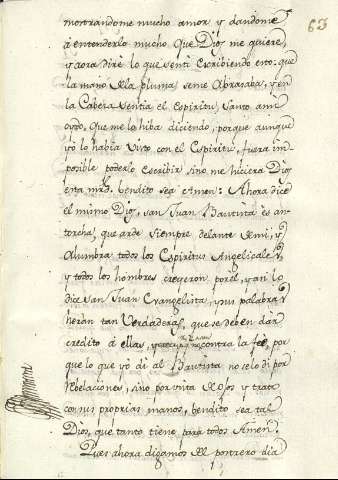 63
mostrandome mucho amor y dandome
á entenderlo mucho que Dios me quiere,
y aora diré lo que sentí escribiendo esto: que
la mano de la pluma se me abrasaba, y en
la Cabeza sentia el Espiritu Santo am
que me lo hiba diciendo, porque aunque
yo lo habia visto con el Espiritu, fuera im
posible poderlo escribir sino me hiciera Dios
esta mrd. bendito sea Amen: Ahora dice
el mismo Dios, San Juan Bautista es an-
torcha, que arde siempre delante de mi, y
Alumbra todos los Espiritus Angelicales,
y todos los hombres creyeron por él, y asi lo
dice San Juan Evangelista, y sus palabras
heran tan Verdaderas, que se deben dár
credito á ellas, contra la fee, por
que lo que yo dí al Bautista no se lo dí por
Rebelaciones, sino por vista de ojos y trato
con mis proprias manos, bendito sea tal
Dios, que tanto tiene para todos Amen.
Pues ahora digamos el postrero dia